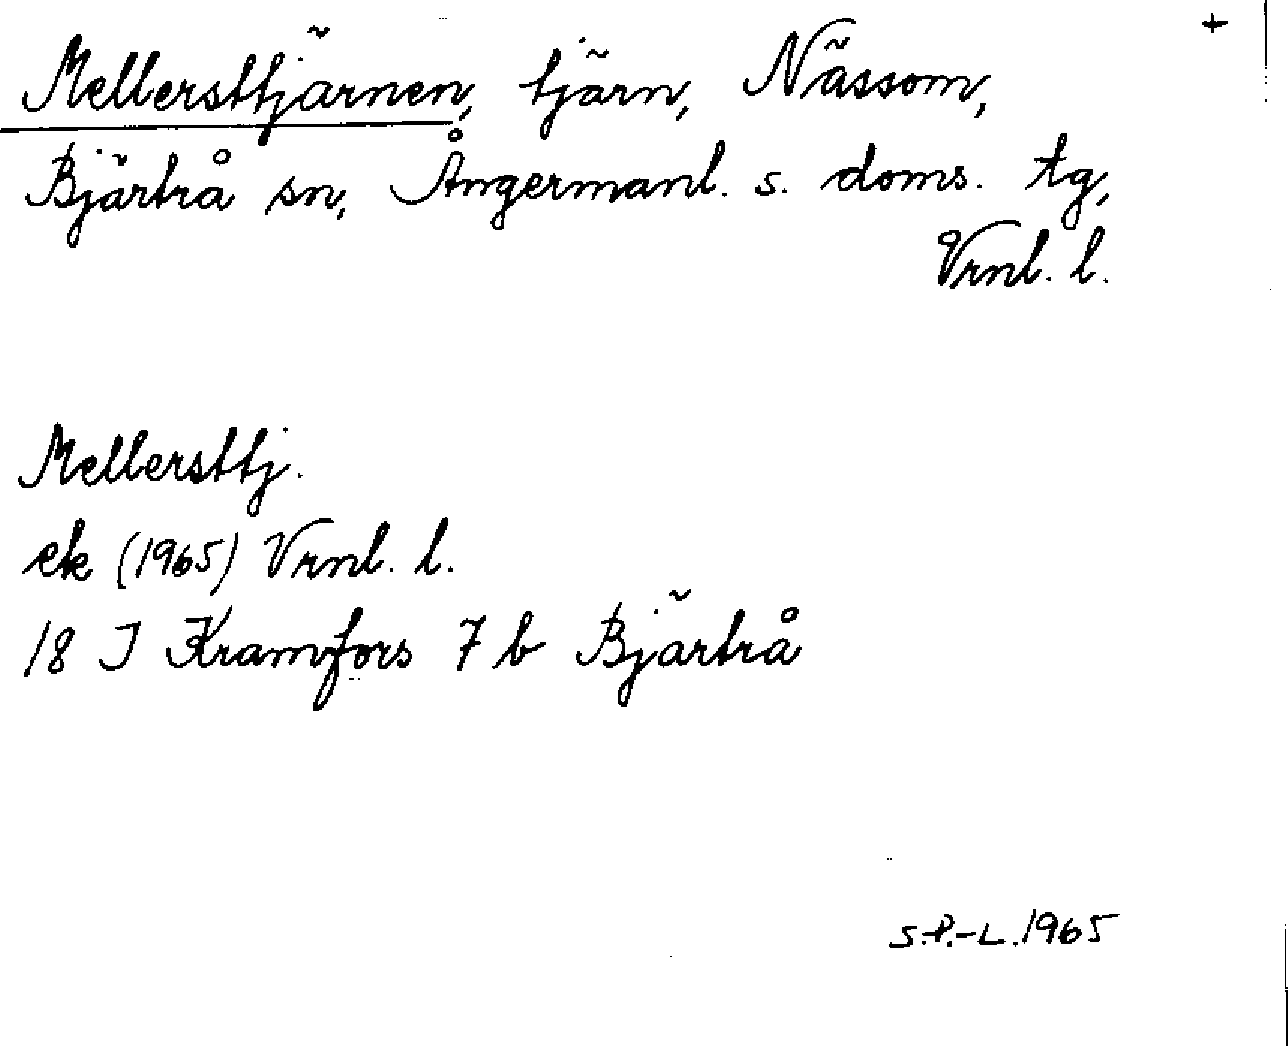 +
Mellersttjärnen, tjärn, Nässom,
Bjärtrå sn, Ångermanl. s. doms. tg,
Vrnl. l.
Mellersttj.
ek (1965) Vrnl. l.
18 I Kramfors 7 b Bjärtrå
S.P.-L. 1965